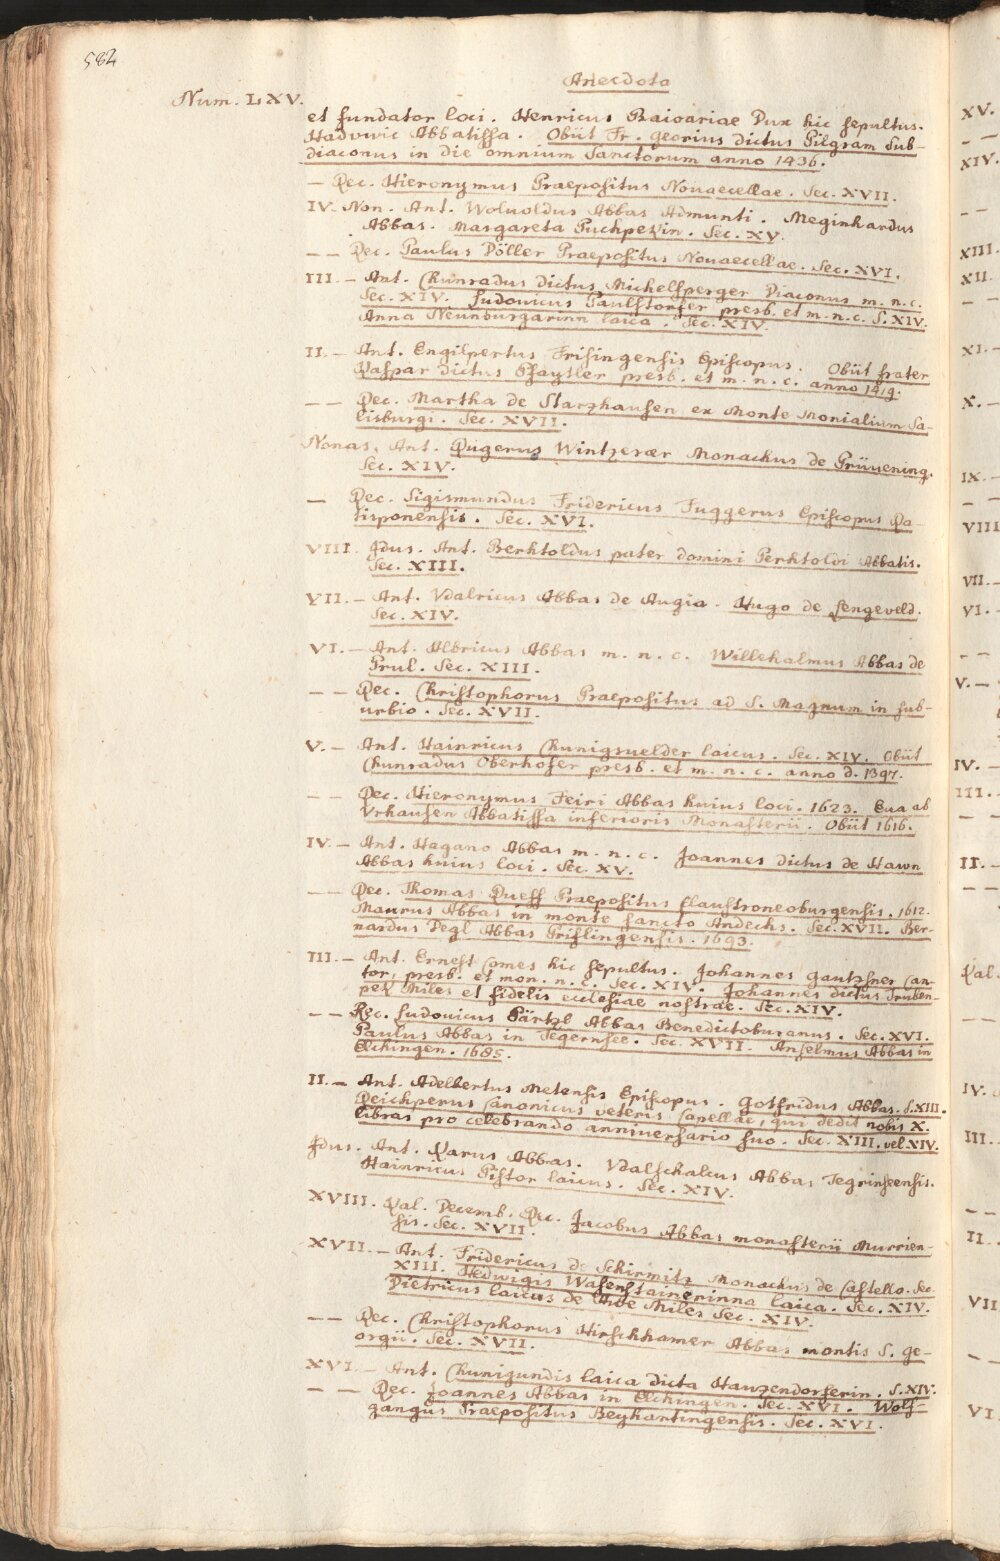 584
Anecdota
Num. LXV.
et fundator loci. Henricus Baioariae Dux hic sepultus.
Hadvvic Abbatissa. Obiit Fr. Georius dictus Pilgram Sub-
diaconus in die omnium Sanctorum anno 1436.
— Rec. Hieronymus Praepositus Nouaecellae. Sec. XVII.
IV. Non. Ant. Woluoldus Abbas Admunti. Meginhardus
Abbas. Margareta Puchpekin. Sec. XV.
— — Rec. Paulus Döller Praepositus Nouaecellae. Sec. XVI.
III. — Ant. Chunradus dictus Michelsperger Diaconus m. n. c.
Sec. XIV. Ludouicus Paulstorfer presb. et m. n. c. S. XIV.
Anna Neunburgarinn laica. Sec. XIV.
II. — Ant. Engilpertus Frisingensis Episcopus. Obiit frater
Kaspar dictus presb. et m. n. c. anno 1419.
— — Rec. Martha de Starzhausen ex Monte Monialium Sa-
lisburgi. Sec. XVII.
Nonas. Ant. Rugerus Wintzerær Monachus de Prüuening.
Sec. XIV.
— Rec. Sigismundus Fridericus Fuggerus Episcopus Ra-
tisponensis. Sec. XVI.
VIII. Idus. Ant. Berhtoldus pater domini Perhtoldi Abbatis.
Sec. XIII.
VII. — Ant. Vdalricus Abbas de Augia. Hugo de Lengeveld.
Sec. XIV.
VI. — Ant. Albricus Abbas m. n. c. Willehalmus Abbas de
Prul. Sec. XIII.
— — Rec. Christophorus Praepositus ad S. Magnum in sub-
urbio. Sec. XVII.
V. — Ant. Hainricus Chunigsuelder laicus. Sec. XIV. Obiit
Chunradus Oberhofer presb. et m. n. c. anno d. 1397.
— — Rec. Hieronymus Feiri Abbas huius loci. 1623. Eua ab
Vrhausen Abbatissa inferioris Monasterii. Obiit 1616.
IV. — Ant. Hagano Abbas m. n. c. Joannes dictus de Hawn
Abbas huius loci. Sec. XV.
— — Rec. Thomas Ruess Praepositus Claustroneoburgensis. 1612.
Maurus Abbas in monte sancto Andechs. Sec. XVII. Ber-
nardus Degl Abbas Priflingensis. 1693.
III. — Ant. Ernest Comes hic sepultus. Johannes Gautzsner Can-
tor, presb. et mon. n. c. Sec. XIV. Johannes dictus Truben-
pek Miles et fidelis ecclesiae nostrae. Sec. XIV.
— — Rec. Ludouicus Pärtzl Abbas Benedictoburanus. Sec. XVI.
Paulus Abbas in Tegernsee. Sec. XVII. Anselmus Abbas in
Elchingen. 1685.
II. — Ant. Adelbertus Metensis Episcopus. Gotfridus Abbas. S. XIII.
Reichperus Canonicus veteris Capellae, qui dedit nobis X.
libras pro celebrando anniuersario suo. Sec. XIII. vel XIV.
Idus. Ant. Karus Abbas. Vdalschalcus Abbas Tegrinseensis.
Hainricus Pistor laicus. Sec. XIV.
XVIII. Kal. Decemb. Rec. Jacobus Abbas monasterii Murrien-
sis. Sec. XVII.
XVII. — Ant. Fridericus de Schirmitz Monachus de Castello. Sec.
XIII. Hedwigis Wasenstainerinna laica. Sec. XIV.
Dietricus laicus de Miles Sec. XIV.
— — Rec. Christophorus Hirschhamer Abbas montis S. Ge-
orgii. Sec. XVII.
XVI. — Ant. Chunigundis laica dicta Hauzendorferin. S. XIV.
— — Rec. Joannes Abbas in Elchingen. Sec. XVI. Wolf-
gangus Praepositus Beyhartingensis. Sec. XVI.
XV.
XIV.
XIII.
XII.
XI. —
X. —
IX. —
VIII
VII. —
VI. —
V. —
IV. —
III. —
II. —
Kal.
IV.
III.
II.
VII
VI